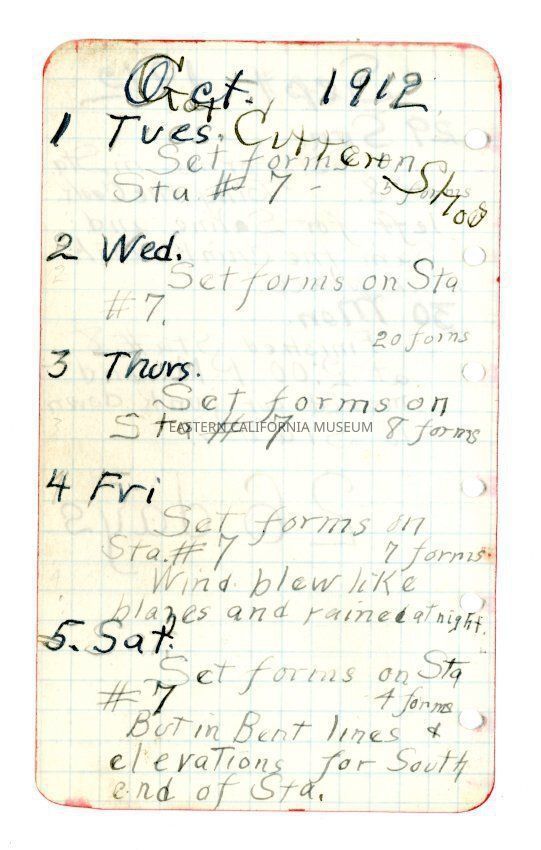 Oct. 1912
Got
1 Tues. Cutter Shoe
Set forms on
Sta # 7 - 85 forms
2 Wed.
Set forms on Sta
# 7.
20 forms
3 Thurs.
Set forms on
Sta # 7 8 forms
EASTERN CALIFORNIA MUSEUM
4 Fri
Set forms on
Sta. # 7 7 forms
Wind blew like
blazes and rained at night.
5. Sat.
Set forms on Sta
# 7 4 forms
But in Bent lines &
elevations for South
end of Sta.